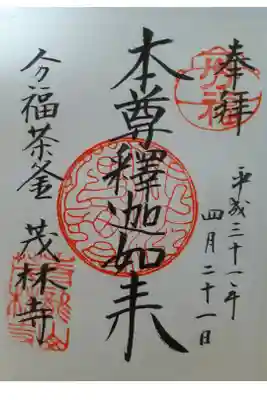 奉拝
平成三十一年
四月二十一日
本尊釋迦如来
分福茶釜 茂林寺